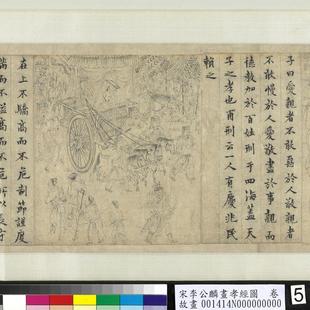 子曰愛親者不敢惡於人敬親者
不敢慢於人愛敬盡於事親而
德教加於百姓刑于四海蓋天
子之孝也甫刑云一人有慶兆民
賴之
在上不驕高而不危制節謹度
滿而不溢高而不危所以長守
宋李公麟畫孝經圖 卷
故畫 001414N000000000
5